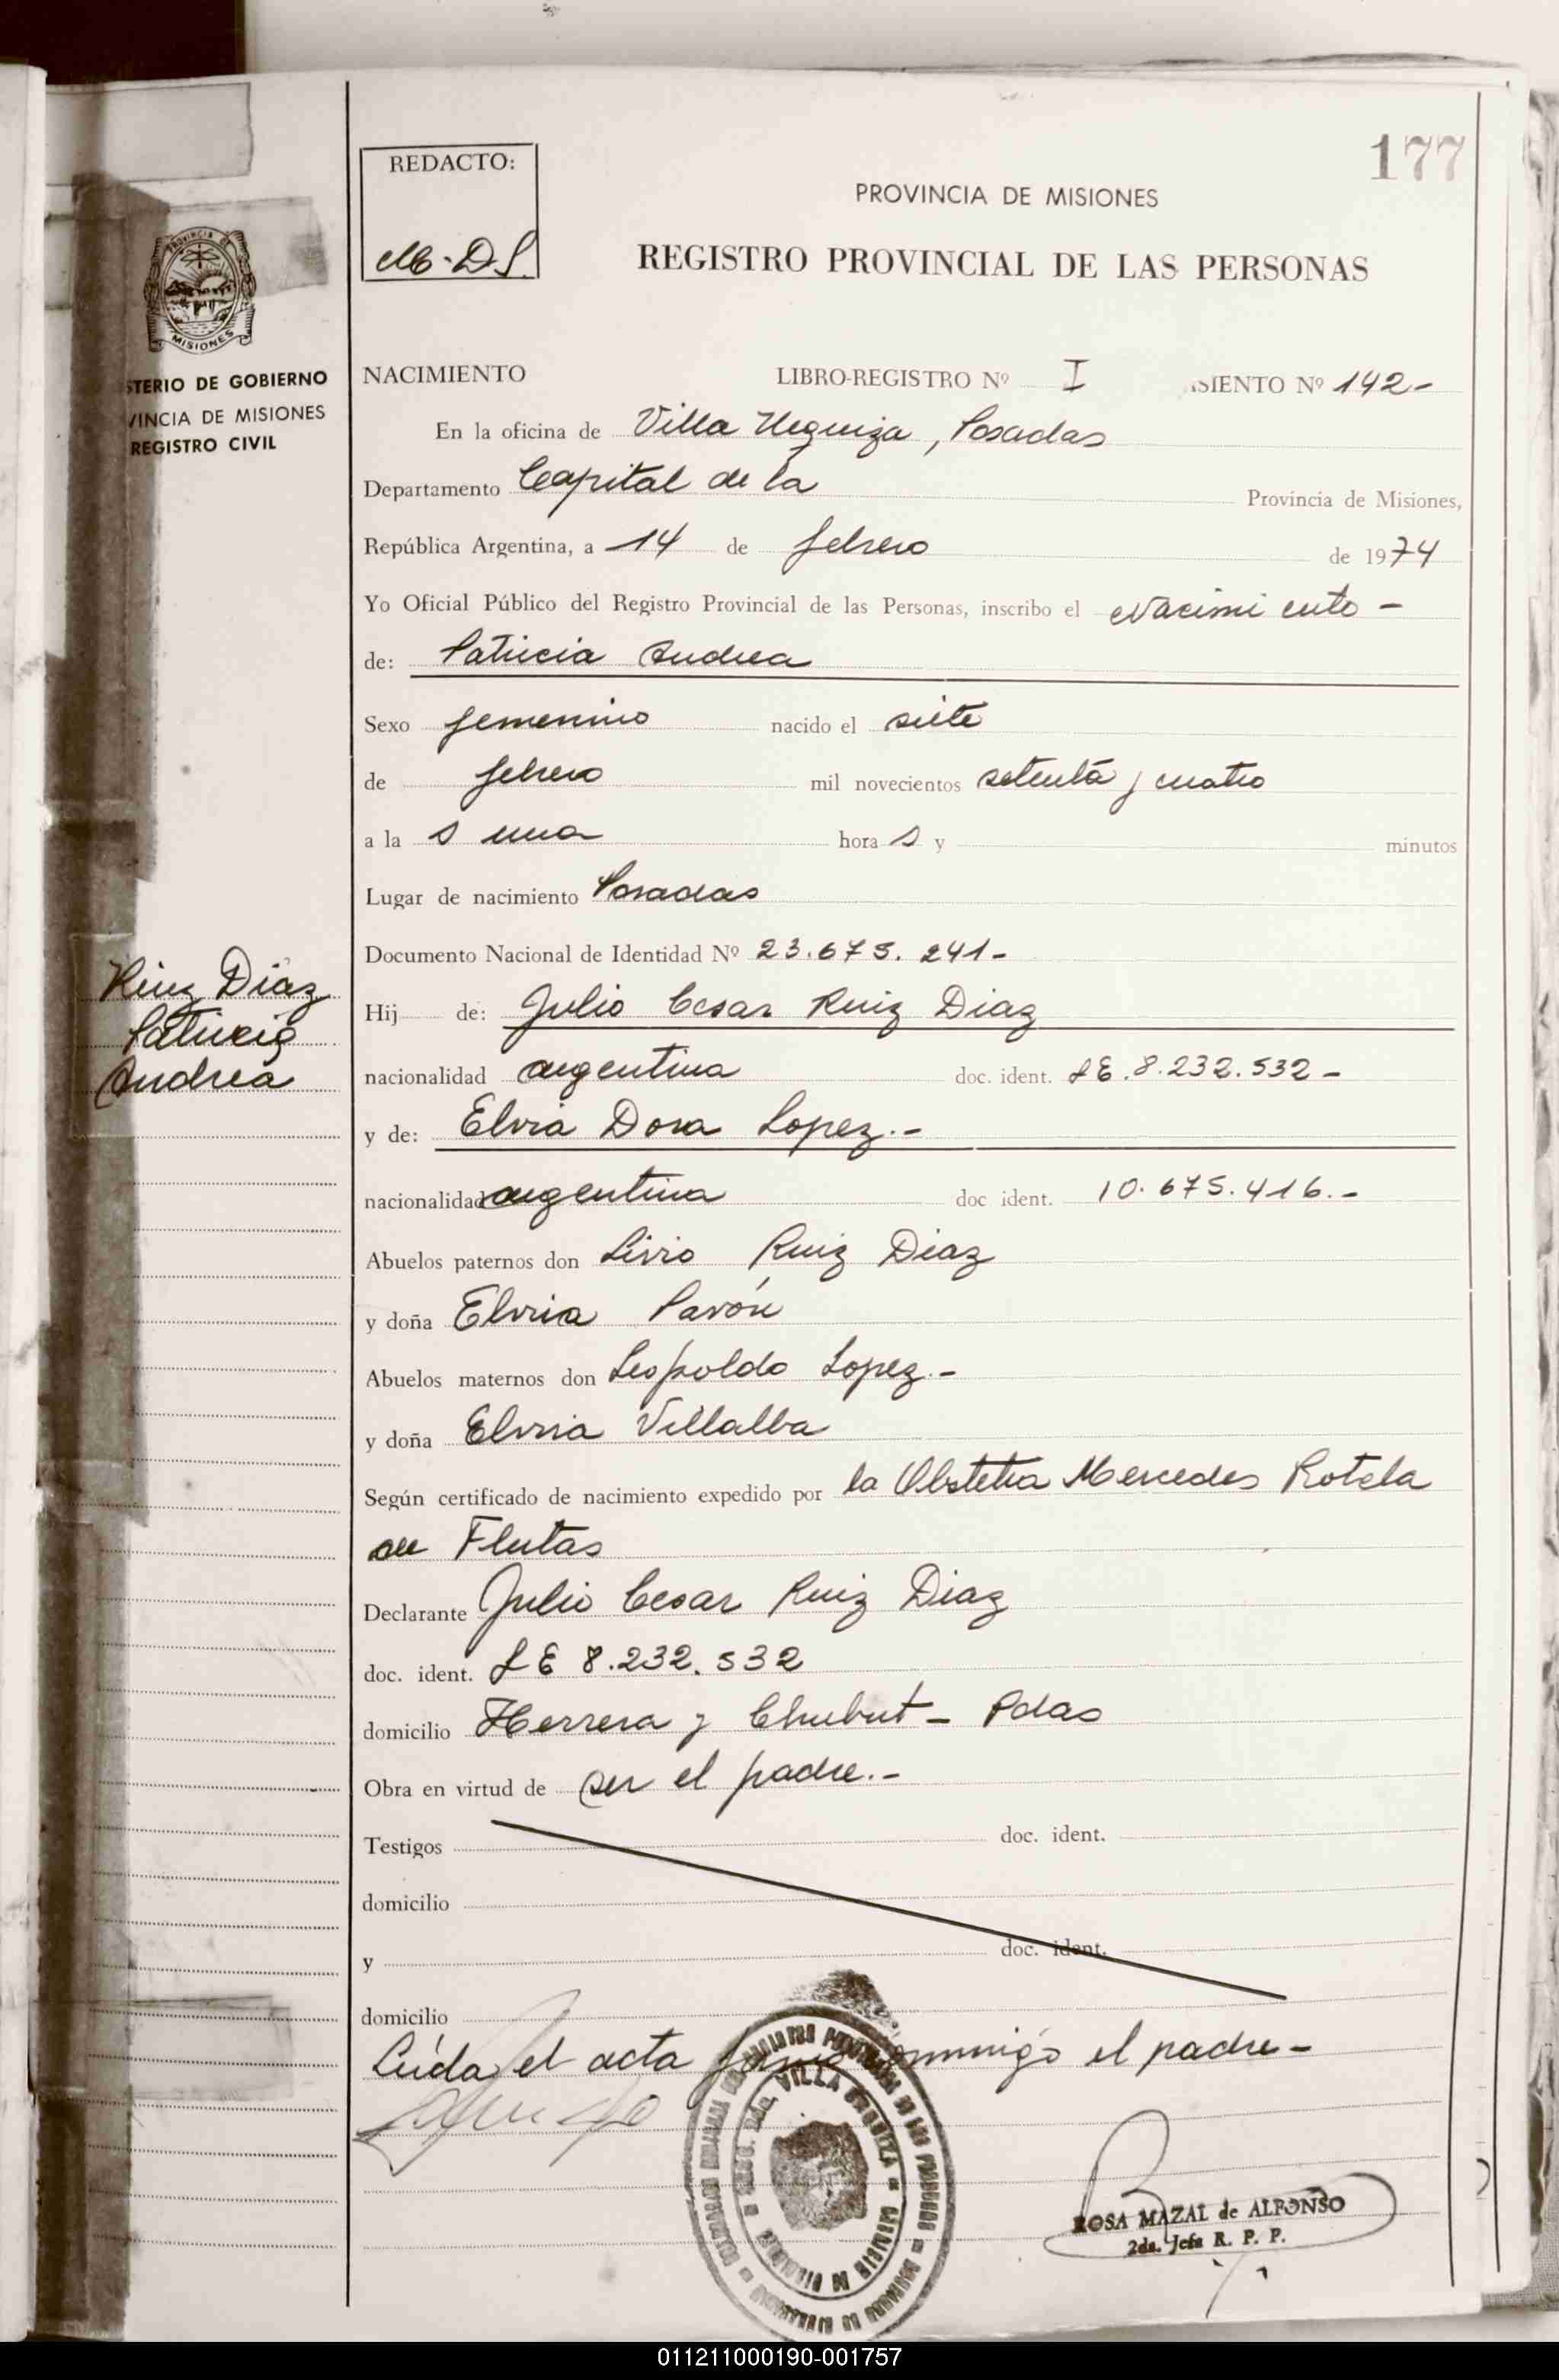 177
REDACTO:
M. D. S.
PROVINCIA DE MISIONES
REGISTRO PROVINCIAL DE LAS PERSONAS
PROVINCIA DE
MISIONES
STERIO DE GOBIERNO
VINCIA DE MISIONES
REGISTRO CIVIL
NACIMIENTO LIBRO-REGISTRO Nº I SIENTO Nº 142-
En la oficina de Villa Urquiza, Posadas
Departamento Capital de la Provincia de Misiones,
República Argentina, a 14 de febrero de 1974
Yo Oficial Público del Registro Provincial de las Personas, inscribo el Nacimiento -
de: Patricia Andrea
Sexo femenino nacido el siete
de febrero mil novecientos setenta y cuatro
a la s una hora s y minutos
Lugar de nacimiento Posadas
Documento Nacional de Identidad Nº 23.675.241-
Ruiz Diaz
Patricia
Andrea
Hij de: Julio Cesar Ruiz Diaz
nacionalidad argentina doc. ident. LE.8.232.532-
y de: Elvia Dora Lopez.-
nacionalidad argentina doc ident. 10.675.416.-
Abuelos paternos don Livio Ruiz Diaz
y doña Elviria Pavón
Abuelos maternos don Leopoldo Lopez.-
y doña Elviria Villalba
Según certificado de nacimiento expedido por la Obstetra Mercedes Rotela
de Flutas
Declarante Julio Cesar Ruiz Diaz
doc. ident. LE 8.232.532
domicilio Herrera y Chubut - Pdas
Obra en virtud de ser el padre.-
Testigos doc. ident.
domicilio
y doc. ident.
domicilio
Leída el acta firma conmigo el padre-
VILLA URQUIZA
ROSA MAZAL de ALFONSO
2da. Jefa R. P. P.
011211000190-001757